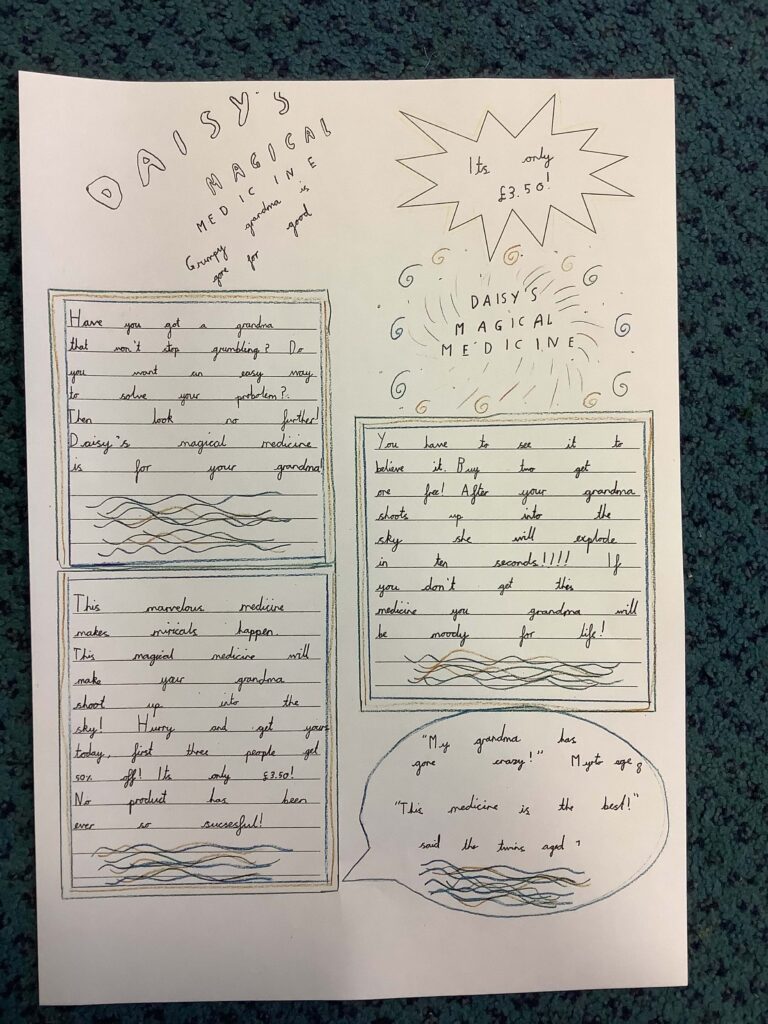 DAISY'S
MAGICAL
MEDICINE
Grumpy grandma is
gone for good
Its only
£3.50!
DAISY'S
MAGICAL
MEDICINE
Have you got a grandma
that won't stop grumbling? Do
you want an easy way
to solve your probolem?
Then look no further!
Daisy's magical medicine
is for your grandma!
This marvelous medicine
makes miricals happen.
This magical medicine will
make your grandma
shoot up into the
sky! Hurry and get yours
today, first three people get
50% off! Its only £3.50!
No product has been
ever so sucsesful!
You have to see it to
believe it. Buy two get
one free! After your grandma
shoots up into the
sky she will explode
in ten seconds!!!! If
you don't get this
medicine you grandma will
be moody for life!
"My grandma has
gone crazy!" Myrto age 8
"This medicine is the best!"
said the twins aged 7